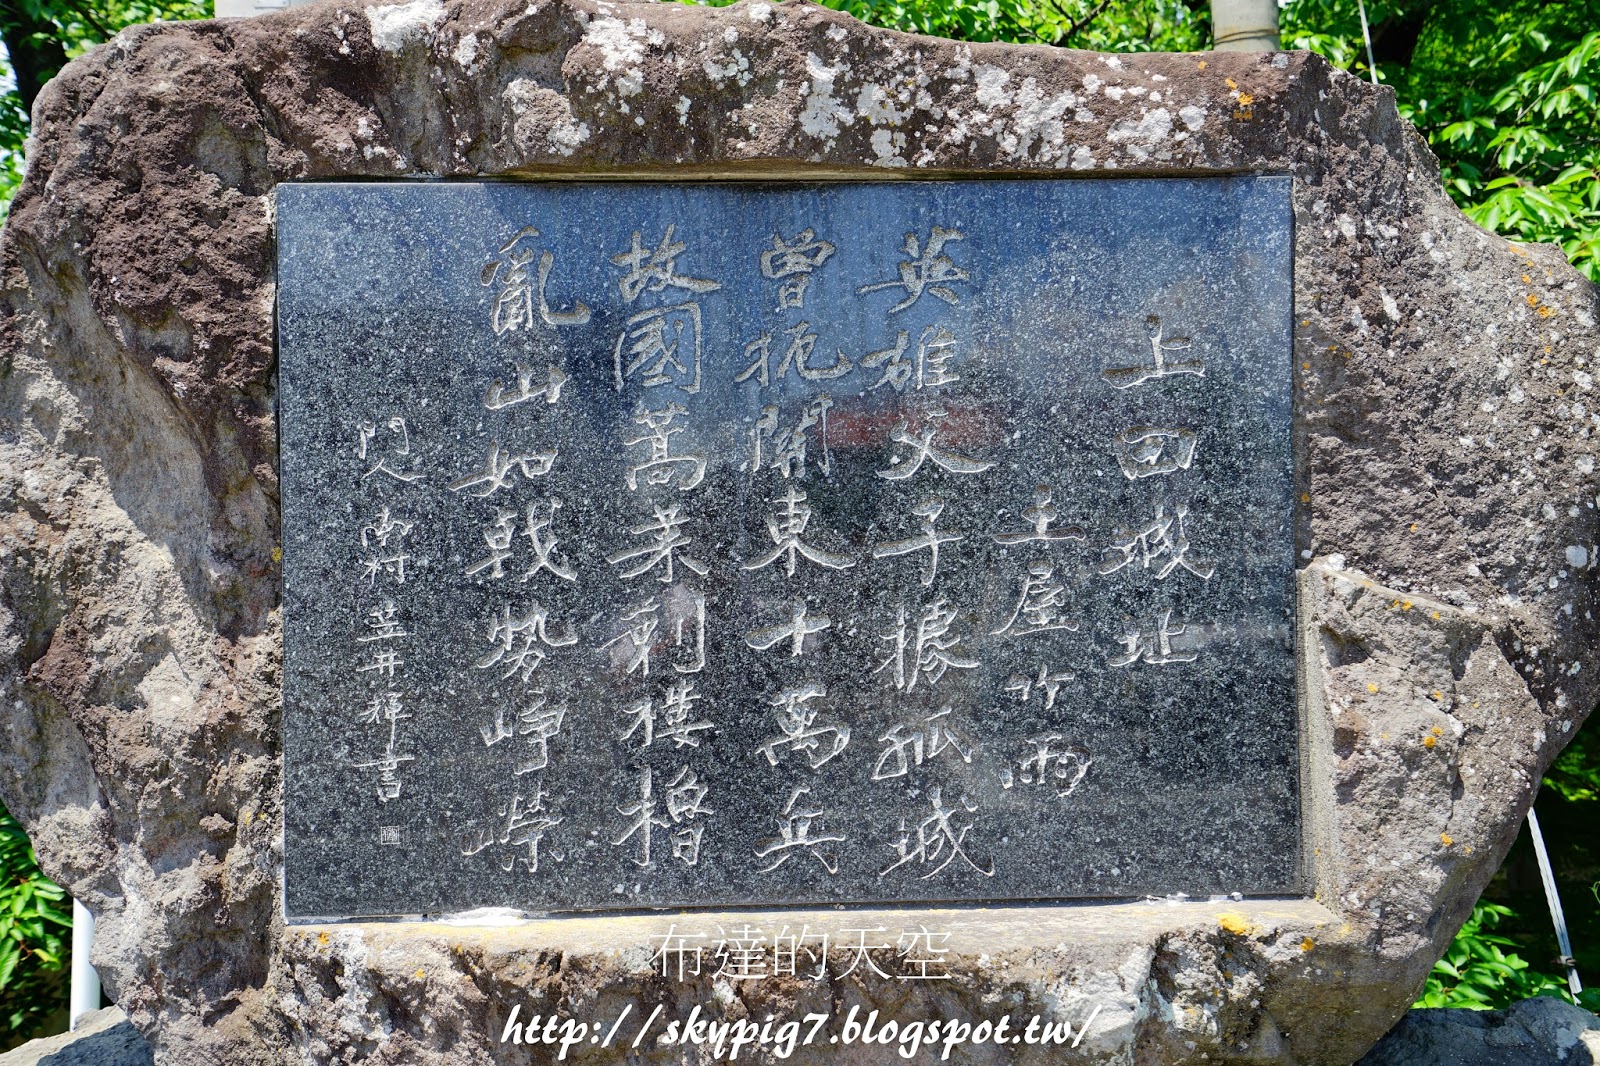 上田城址
土屋竹雨
英雄父子據孤城
曾扼関東十萬兵
故國蒿莱剩樓櫓
亂山如戟勢崢嶸
門人 南村 笠井輝書
布達的天空
http://skypig7.blogspot.tw/